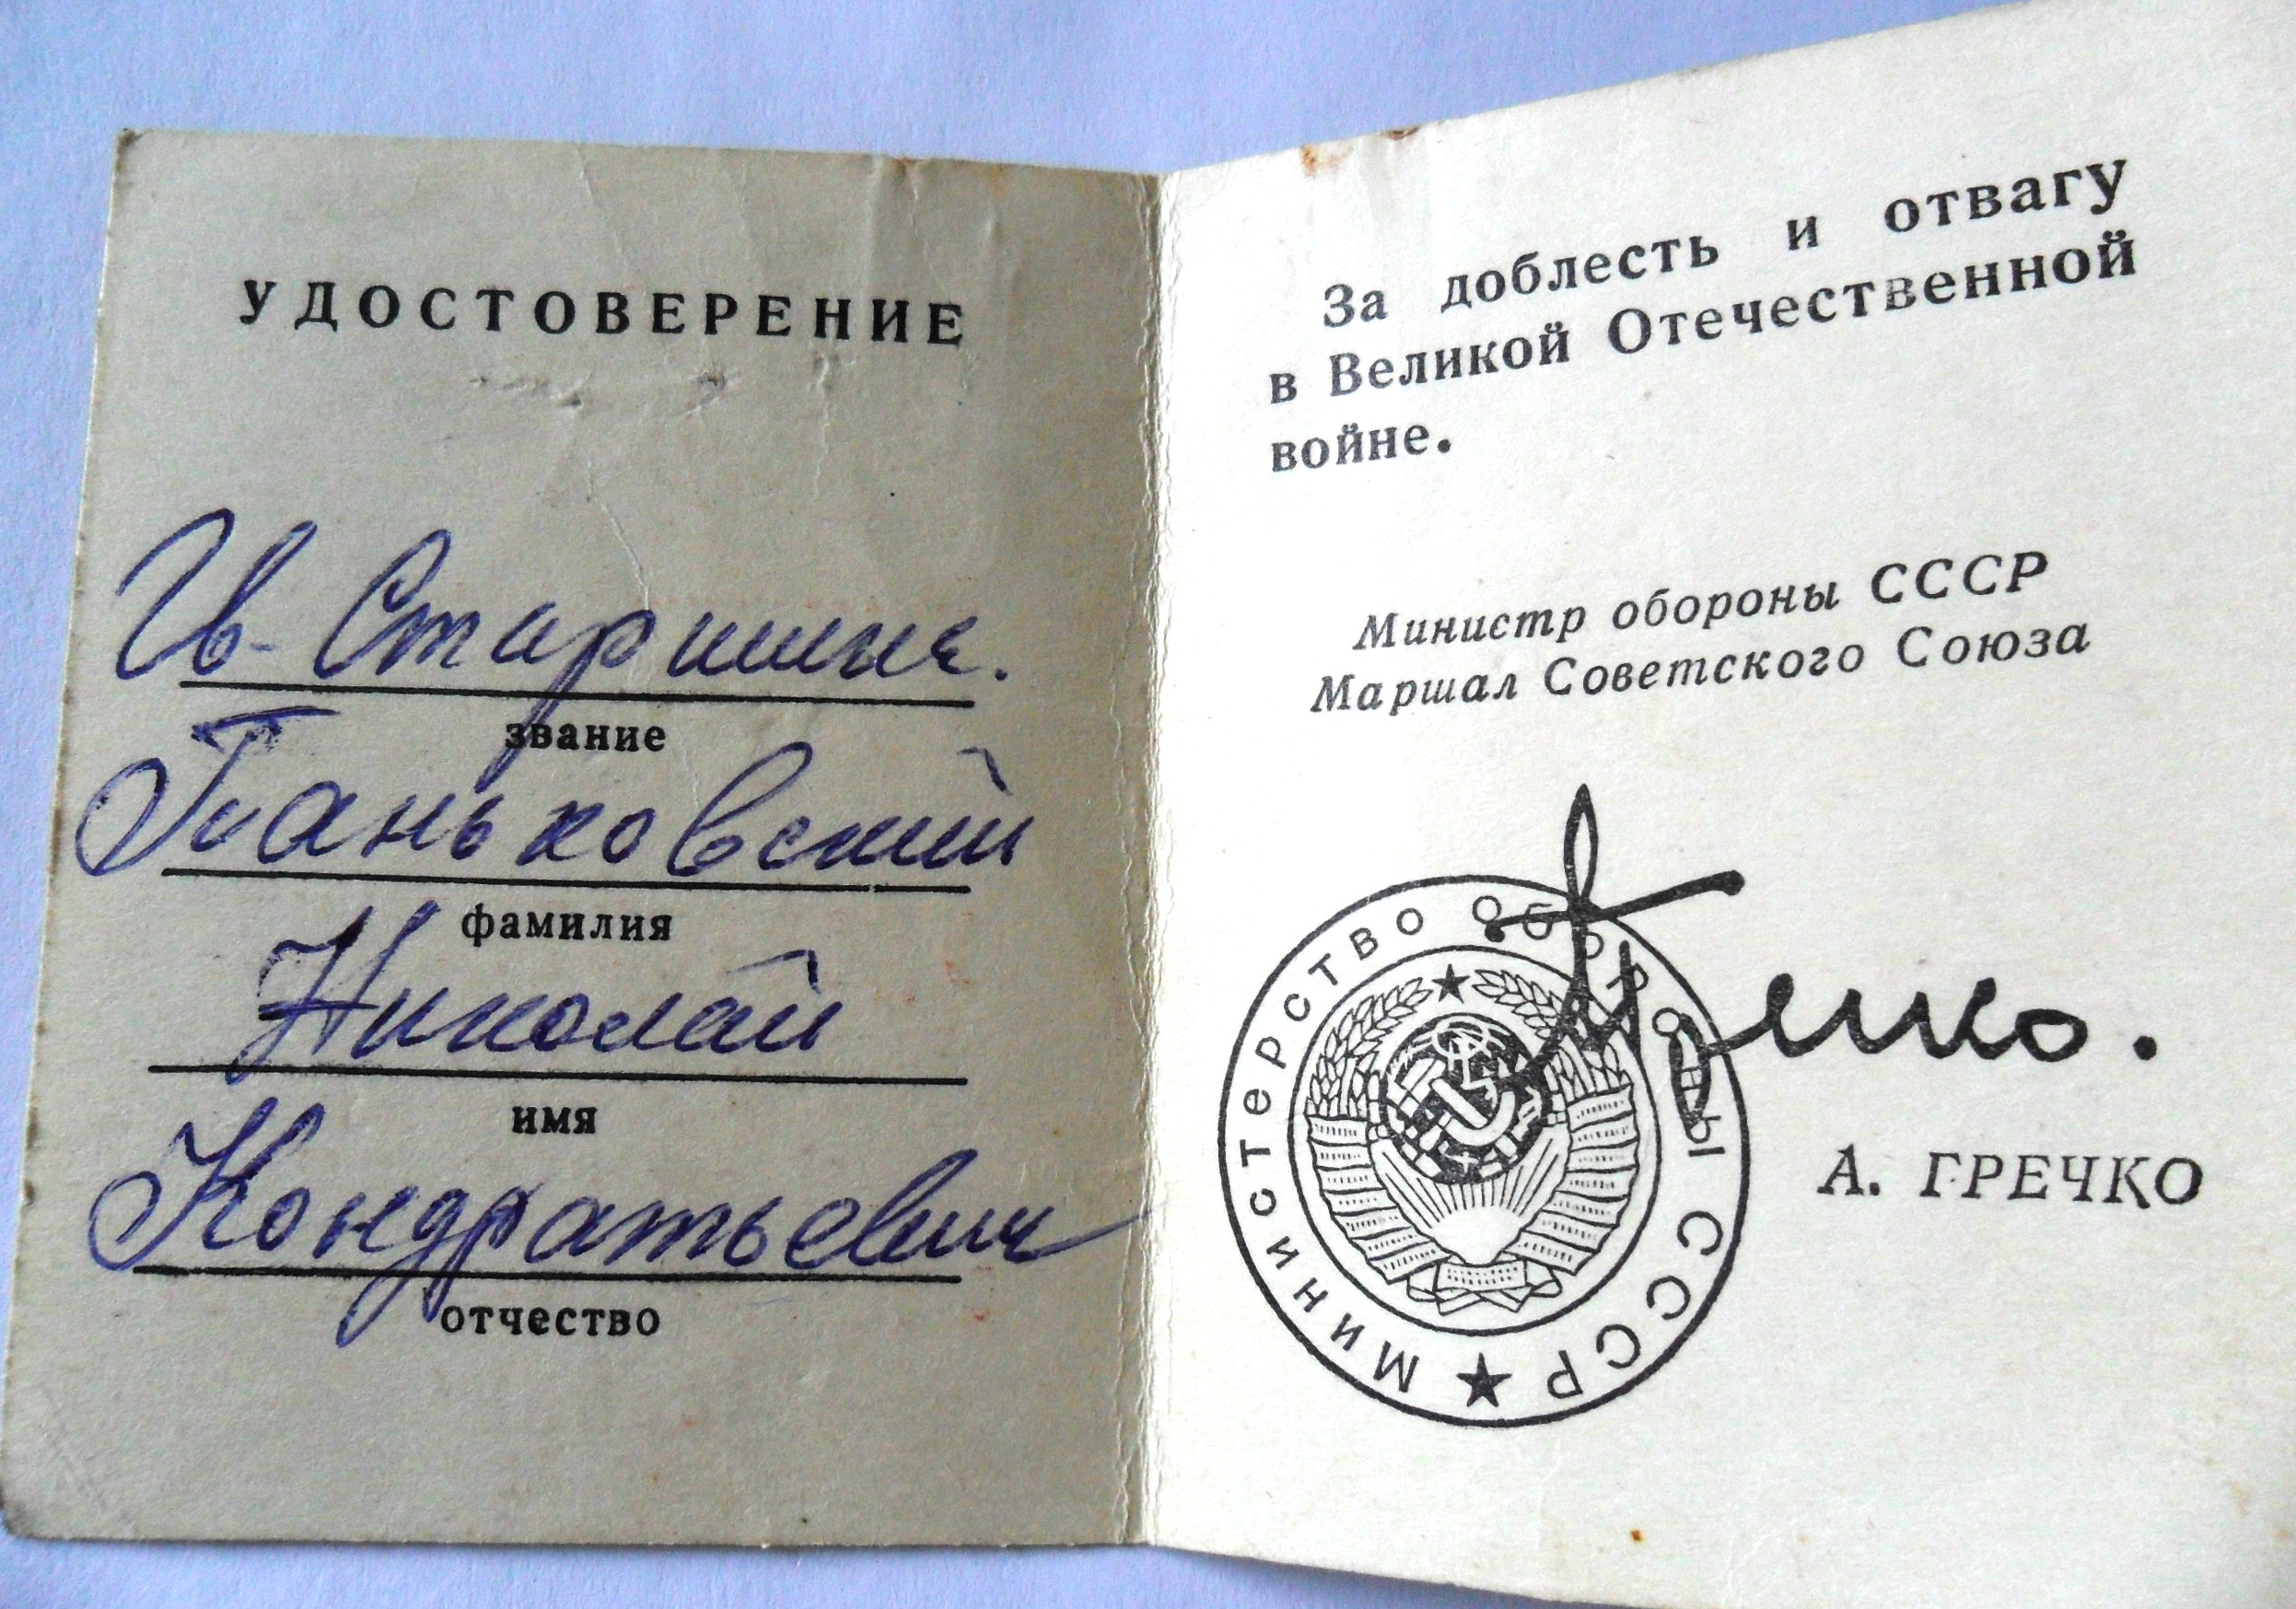 УДОСТОВЕРЕНИЕ
Гв. Старшина.
звание
Паньковский
фамилия
Николай
имя
Кондратьевич
отчество
За доблесть и отвагу
в Великой Отечественной
войне.
Министр обороны СССР
Маршал Советского Союза
Гречко.
МИНИСТЕРСТВО ОБОРОНЫ СССР
А. ГРЕЧКО